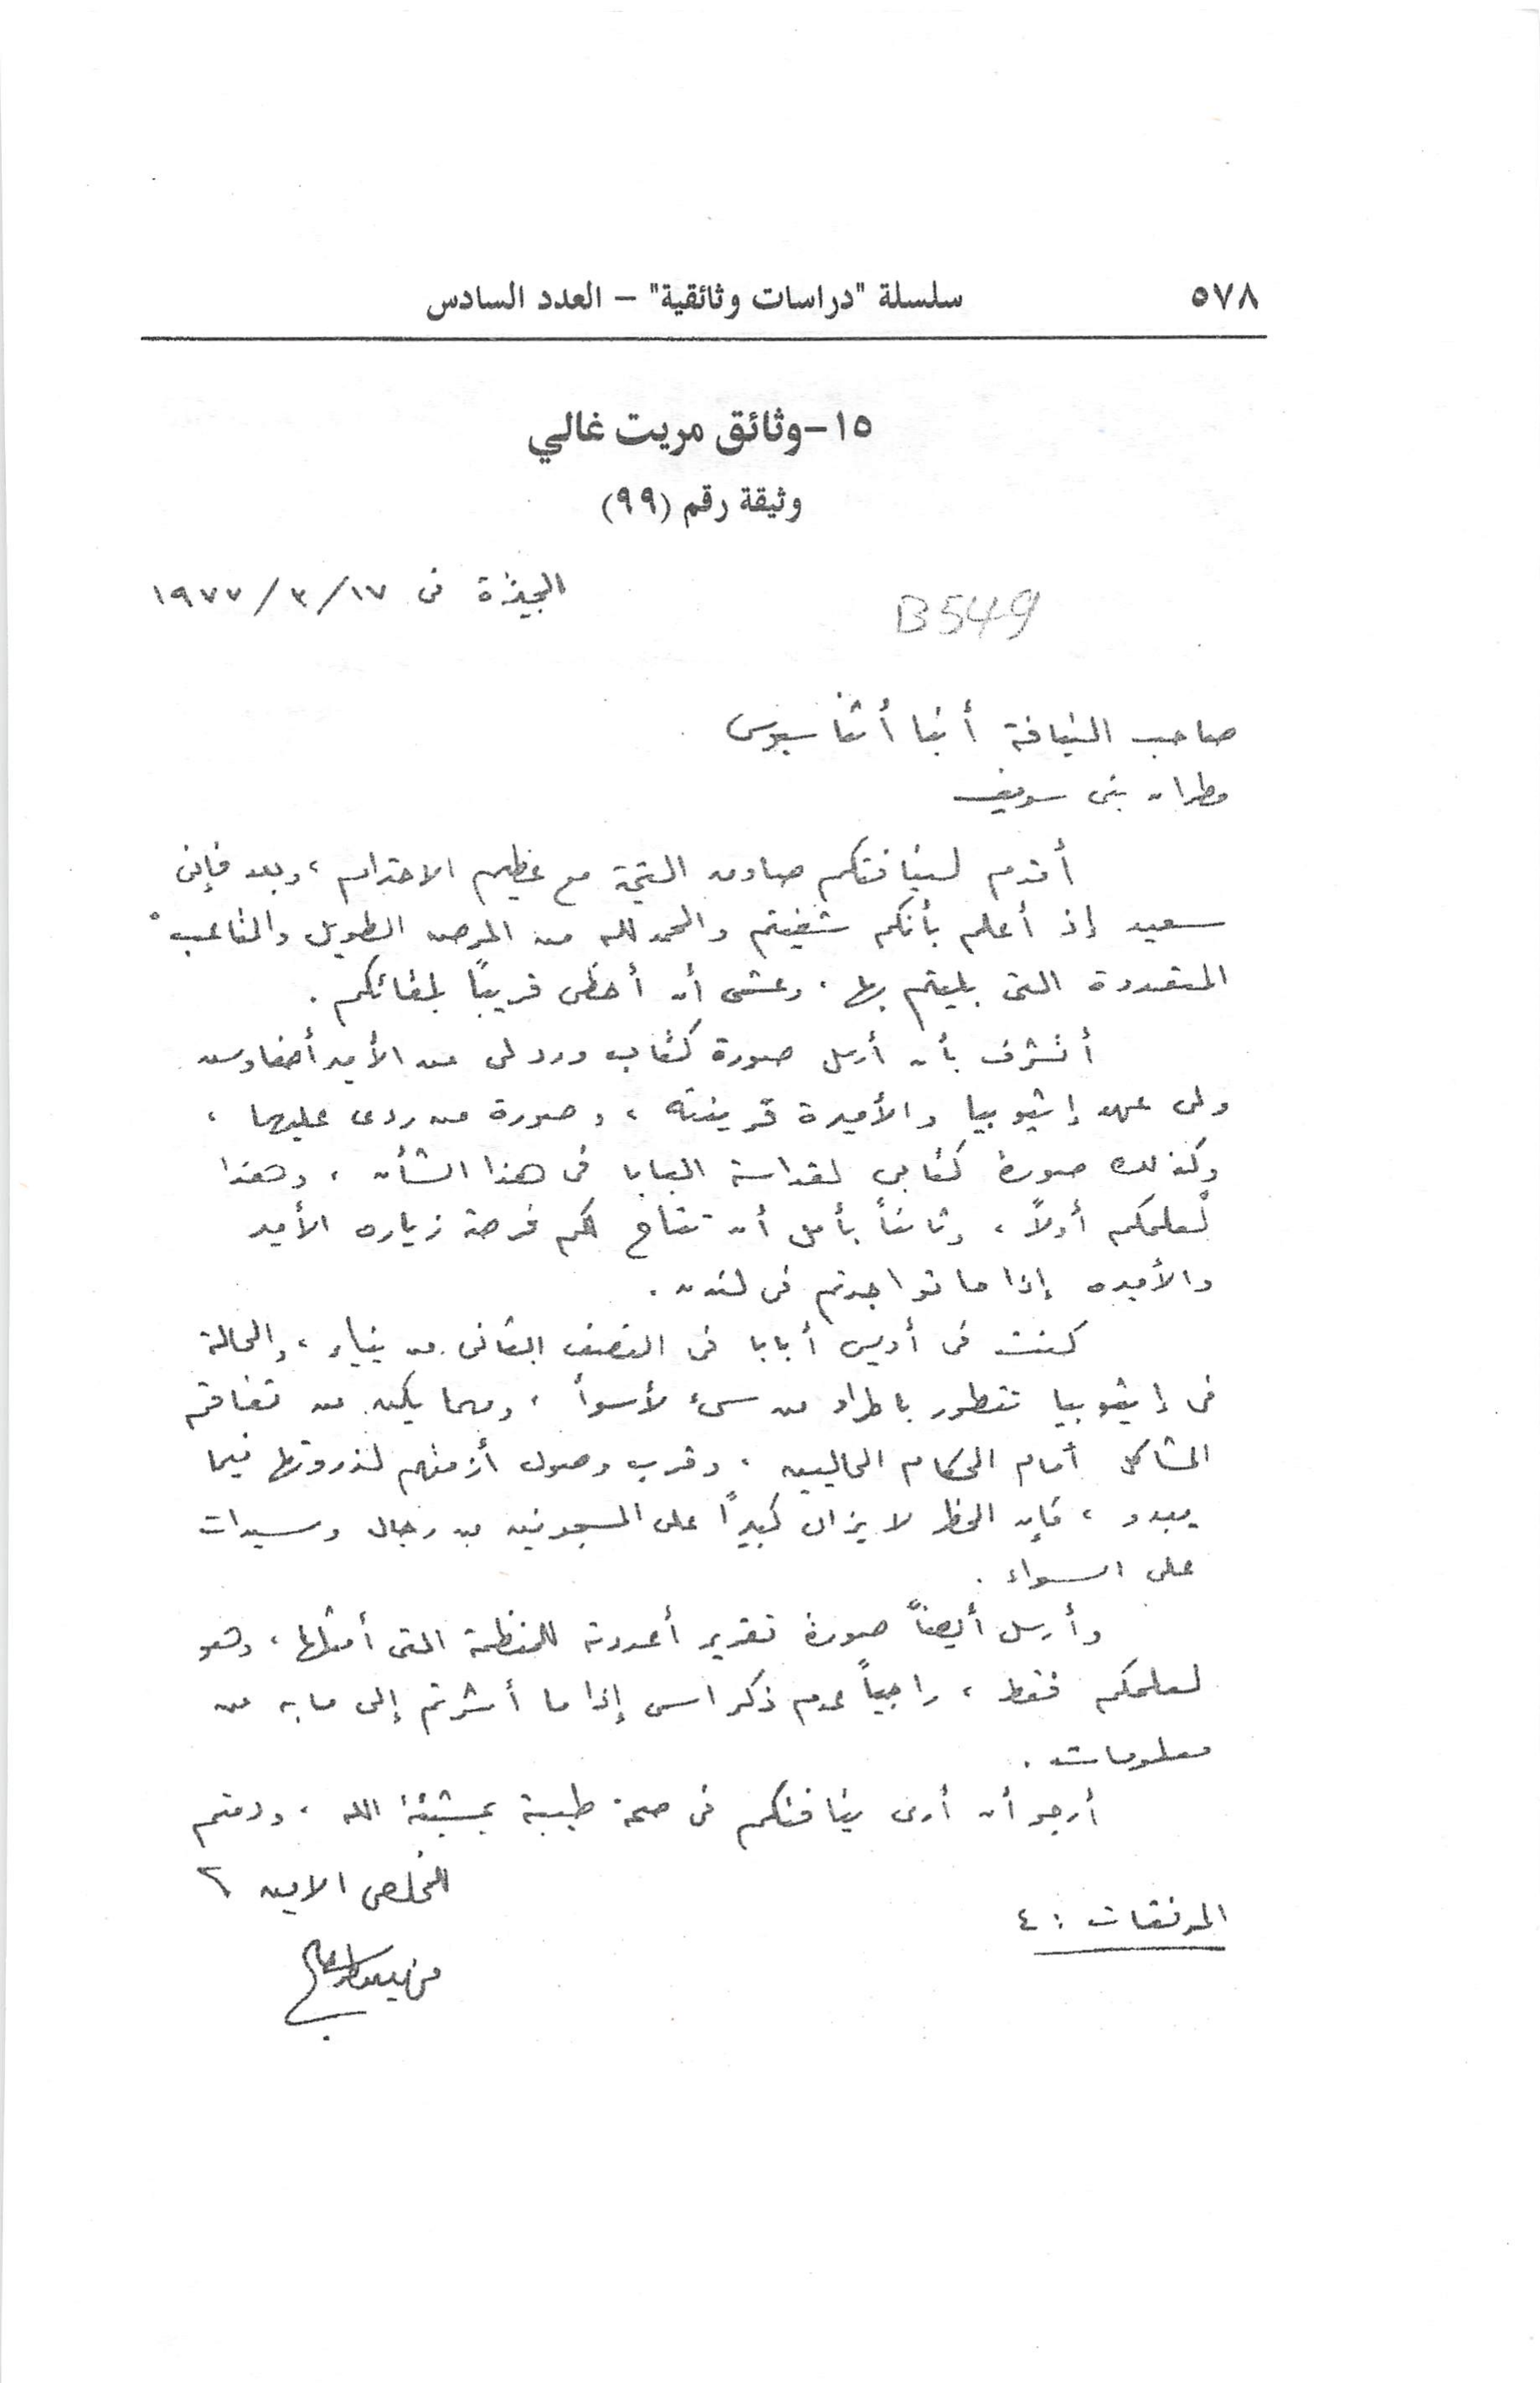 ٥٧٨ سلسلة "دراسات وثائقية" – العدد السادس
١٥-وثائق مريت غالي
وثيقة رقم (٩٩)
الجيزة فى ١٩٧٧/٣/١٧
B549
صاحب النيافة أنبا أثناسيوس
مطران بنى سويف
أقدم لنيافتكم صادق التحية مع عظيم الاحترام، وبعد فإنى
سعيد إذ أعلم بأنكم شفيتم والحمد لله من المرض الطويل والمتاعب
المتعددة التى بليتم بها، وعشمى أن أحظى قريباً بلقائكم.
أتشرف بأن أرسل صورة كتاب ورد لى من الأمير أصفا وسن
ولى عهد إثيوبيا والأميرة قرينته، وصورة من ردى عليهما،
وكذلك صورة كتابى لقداسة البابا فى هذا الشأن، وهذا
لعلمكم أولاً، وثانياً بأمل أن تتاح لكم فرصة زيارة الأمير
والأميرة إذا ما تواجدتم فى لندن.
كنت فى أديس أبابا فى النصف الثانى من يناير، والحالة
فى إثيوبيا تتطور باطراد من سىء لأسوأ، ومهما يكن من تفاقم
المشاكل أمام الحكام الحاليين، وقرب وصول أزمتهم لذروتها فيما
يبدو، فإن الخطر لا يزال كبيراً على المسجونين من رجال وسيدات
على السواء.
وأرسل أيضاً صورة تقرير أعددته للمنظمة التى أمثلها، وهو
لعلمكم فقط، راجياً عدم ذكر اسمى إذا ما أشرتم إلى ما به من
معلومات.
أرجو أن أرى نيافتكم فى صحة طيبة بمشيئة الله، ودمتم
المخلص الامين
المرفقات : ٤